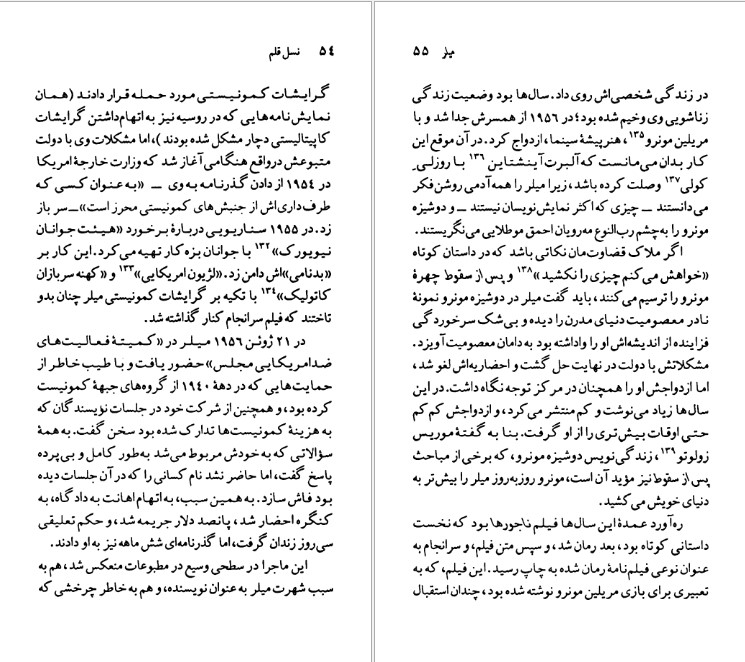 ۵۴ نسل قلم
گرایشات کمونیستی مورد حمله قرار دادند (همان
نمایش‌نامه‌هایی که در روسیه نیز به اتهام‌داشتن گرایشات
کاپیتالیستی دچار مشکل شده بودند)، اما مشکلات وی با دولت
متبوعش درواقع هنگامی آغاز شد که وزارت خارجهٔ امریکا
در ۱۹۵۴ از دادن گذرنامه به وی ــ «به عنوان کسی که
طرف‌داری‌اش از جنبش‌های کمونیستی محرز است» ــ سر باز
زد. در ۱۹۵۵ سناریویی دربارهٔ برخورد «هیئت جوانان
نیویورک»۱۳۲ با جوانان بزه‌کار تهیه می‌کرد. این کار بر
«بدنامی»اش دامن زد. «لژیون امریکایی»۱۳۳ و «کهنه سربازان
کاتولیک»۱۳۴ با تکیه بر گرایشات کمونیستی میلر چنان بدو
تاختند که فیلم سرانجام کنار گذاشته شد.
در ۲۱ ژوئن ۱۹۵۶ میلر در «کمیتهٔ فعالیت‌های
ضدامریکایی مجلس» حضور یافت و با طیب خاطر از
حمایت‌هایی که در دههٔ ۱۹۴۰ از گروه‌های جبههٔ کمونیست
کرده بود، و همچنین از شرکت خود در جلسات نویسندگان که
به هزینهٔ کمونیست‌ها تدارک شده بود سخن گفت. به همهٔ
سؤالاتی که به خودش مربوط می‌شد به‌طور کامل و بی‌پرده
پاسخ گفت، اما حاضر نشد نام کسانی را که در آن جلسات دیده
بود فاش سازد. به همین سبب، به اتهام اهانت به دادگاه، به
کنگره احضار شد، پانصد دلار جریمه شد، و حکم تعلیقی
سی‌روز زندان گرفت، اما گذرنامه‌ای شش ماهه نیز به او دادند.
این ماجرا در سطحی وسیع در مطبوعات منعکس شد، هم به
سبب شهرت میلر به عنوان نویسنده، و هم به خاطر چرخشی که
میلر ۵۵
در زندگی شخصی‌اش روی داد. سال‌ها بود وضعیت زندگی
زناشویی وی وخیم شده بود؛ در ۱۹۵۶ از همسرش جدا شد و با
مریلین مونرو۱۳۵، هنرپیشهٔ سینما، ازدواج کرد. در آن موقع این
کار بدان می‌مانست که آلبرت آینشتاین۱۳۶ با روزلی
کولی۱۳۷ وصلت کرده باشد، زیرا میلر را همه آدمی روشن‌فکر
می‌دانستند ــ چیزی که اکثر نمایش‌نویسان نیستند ــ و دوشیزه
مونرو را به‌چشم رب‌النوع مه‌رویان احمق موطلایی می‌نگریستند.
اگر ملاک قضاوت‌مان نکاتی باشد که در داستان کوتاه
«خواهش می‌کنم چیزی را نکشید»۱۳۸ و پس از سقوط چهرهٔ
مونرو را ترسیم می‌کنند، باید گفت میلر در دوشیزه مونرو نمونهٔ
نادر معصومیت دنیای مدرن را دیده و بی‌شک سرخوردگی
فزاینده از اندیشه‌اش او را واداشته بود به دامان معصومیت آویزد.
مشکلاتش با دولت در نهایت حل گشت و احضاریه‌اش لغو شد،
اما ازدواجش او را همچنان در مرکز توجه نگاه داشت. در این
سال‌ها زیاد می‌نوشت و کم منتشر می‌کرد، و ازدواجش کم کم
حتی اوقات بیش‌تری را از او گرفت. بنا به گفتهٔ موریس
زولوتو۱۳۹، زندگی‌نویس دوشیزه مونرو، که برخی از مباحث
پس از سقوط نیز مؤید آن است، مونرو روزبه‌روز میلر را بیش‌تر به
دنیای خویش می‌کشید.
ره‌آورد عمدهٔ این سال‌ها فیلم ناجورها بود که نخست
داستانی کوتاه بود، بعد رمان شد، و سپس متن فیلم، و سرانجام به
عنوان نوعی فیلم‌نامهٔ رمان شده به چاپ رسید. این فیلم، که به
تعبیری برای بازی مریلین مونرو نوشته شده بود، چندان استقبال